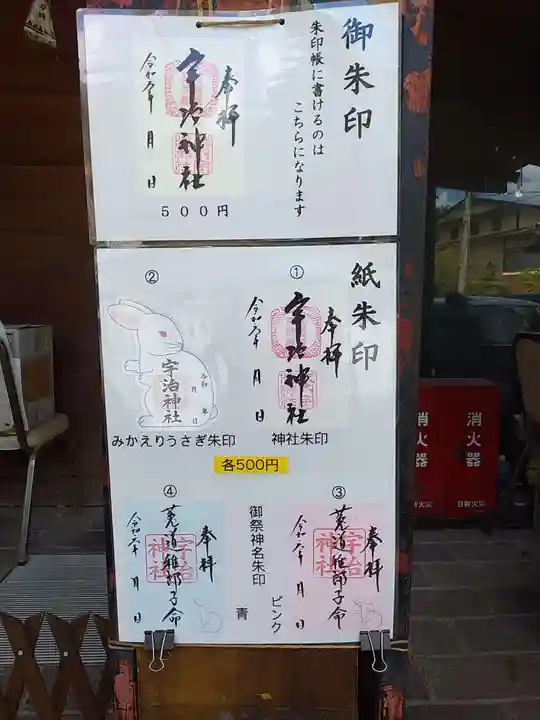 御朱印
朱印帳に書けるのは
こちらになります
奉拝
宇治神社
令和六年 月 日
500円
紙朱印
①
奉拝
宇治神社
令和六年 月 日
神社朱印
②
宇治神社
令和 年
月 日
みかえりうさぎ朱印
各500円
③
奉拝
宇治
神社
菟道稚郎子命
令和六年 月 日
御祭神名朱印
ピンク
青
④
奉拝
宇治
神社
菟道稚郎子命
令和六年 月 日
消火器
日新火災
消火器
日新火災